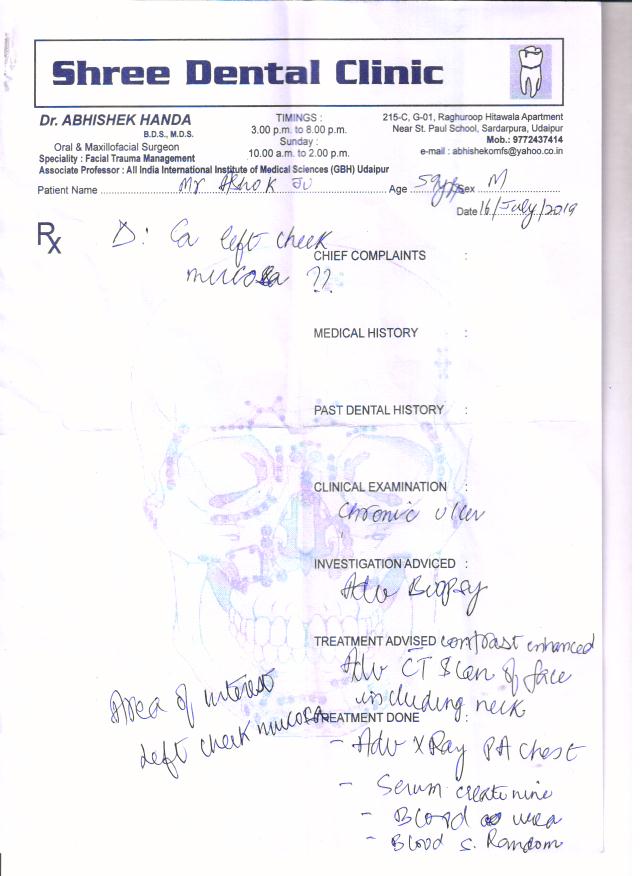 Shree Dental Clinic
Dr. ABHISHEK HANDA
B.D.S., M.D.S.
Oral & Maxillofacial Surgeon
Speciality : Facial Trauma Management
Associate Professor : All India International Institute of Medical Sciences (GBH) Udaipur
TIMINGS :
3.00 p.m. to 8.00 p.m.
Sunday :
10.00 a.m. to 2.00 p.m.
215-C, G-01, Raghuroop Hitawala Apartment
Near St. Paul School, Sardarpura, Udaipur
Mob.: 9772437414
e-mail : abhishekomfs@yahoo.co.in
Patient Name Mr Ashok Age 59 Sex M
Date 16/July/2019
Rx
D: Ca left cheek
mucosa ??
CHIEF COMPLAINTS :
MEDICAL HISTORY :
PAST DENTAL HISTORY :
CLINICAL EXAMINATION :
chronic ulcer
INVESTIGATION ADVICED :
Adv Biopsy
TREATMENT ADVISED contrast enhanced
Adv CT Scan of face
including neck
Area of interest
Left cheek mucosa
TREATMENT DONE :
- Adv X Ray PA chest
- Serum creatinine
- Blood urea
- Blood S. Random